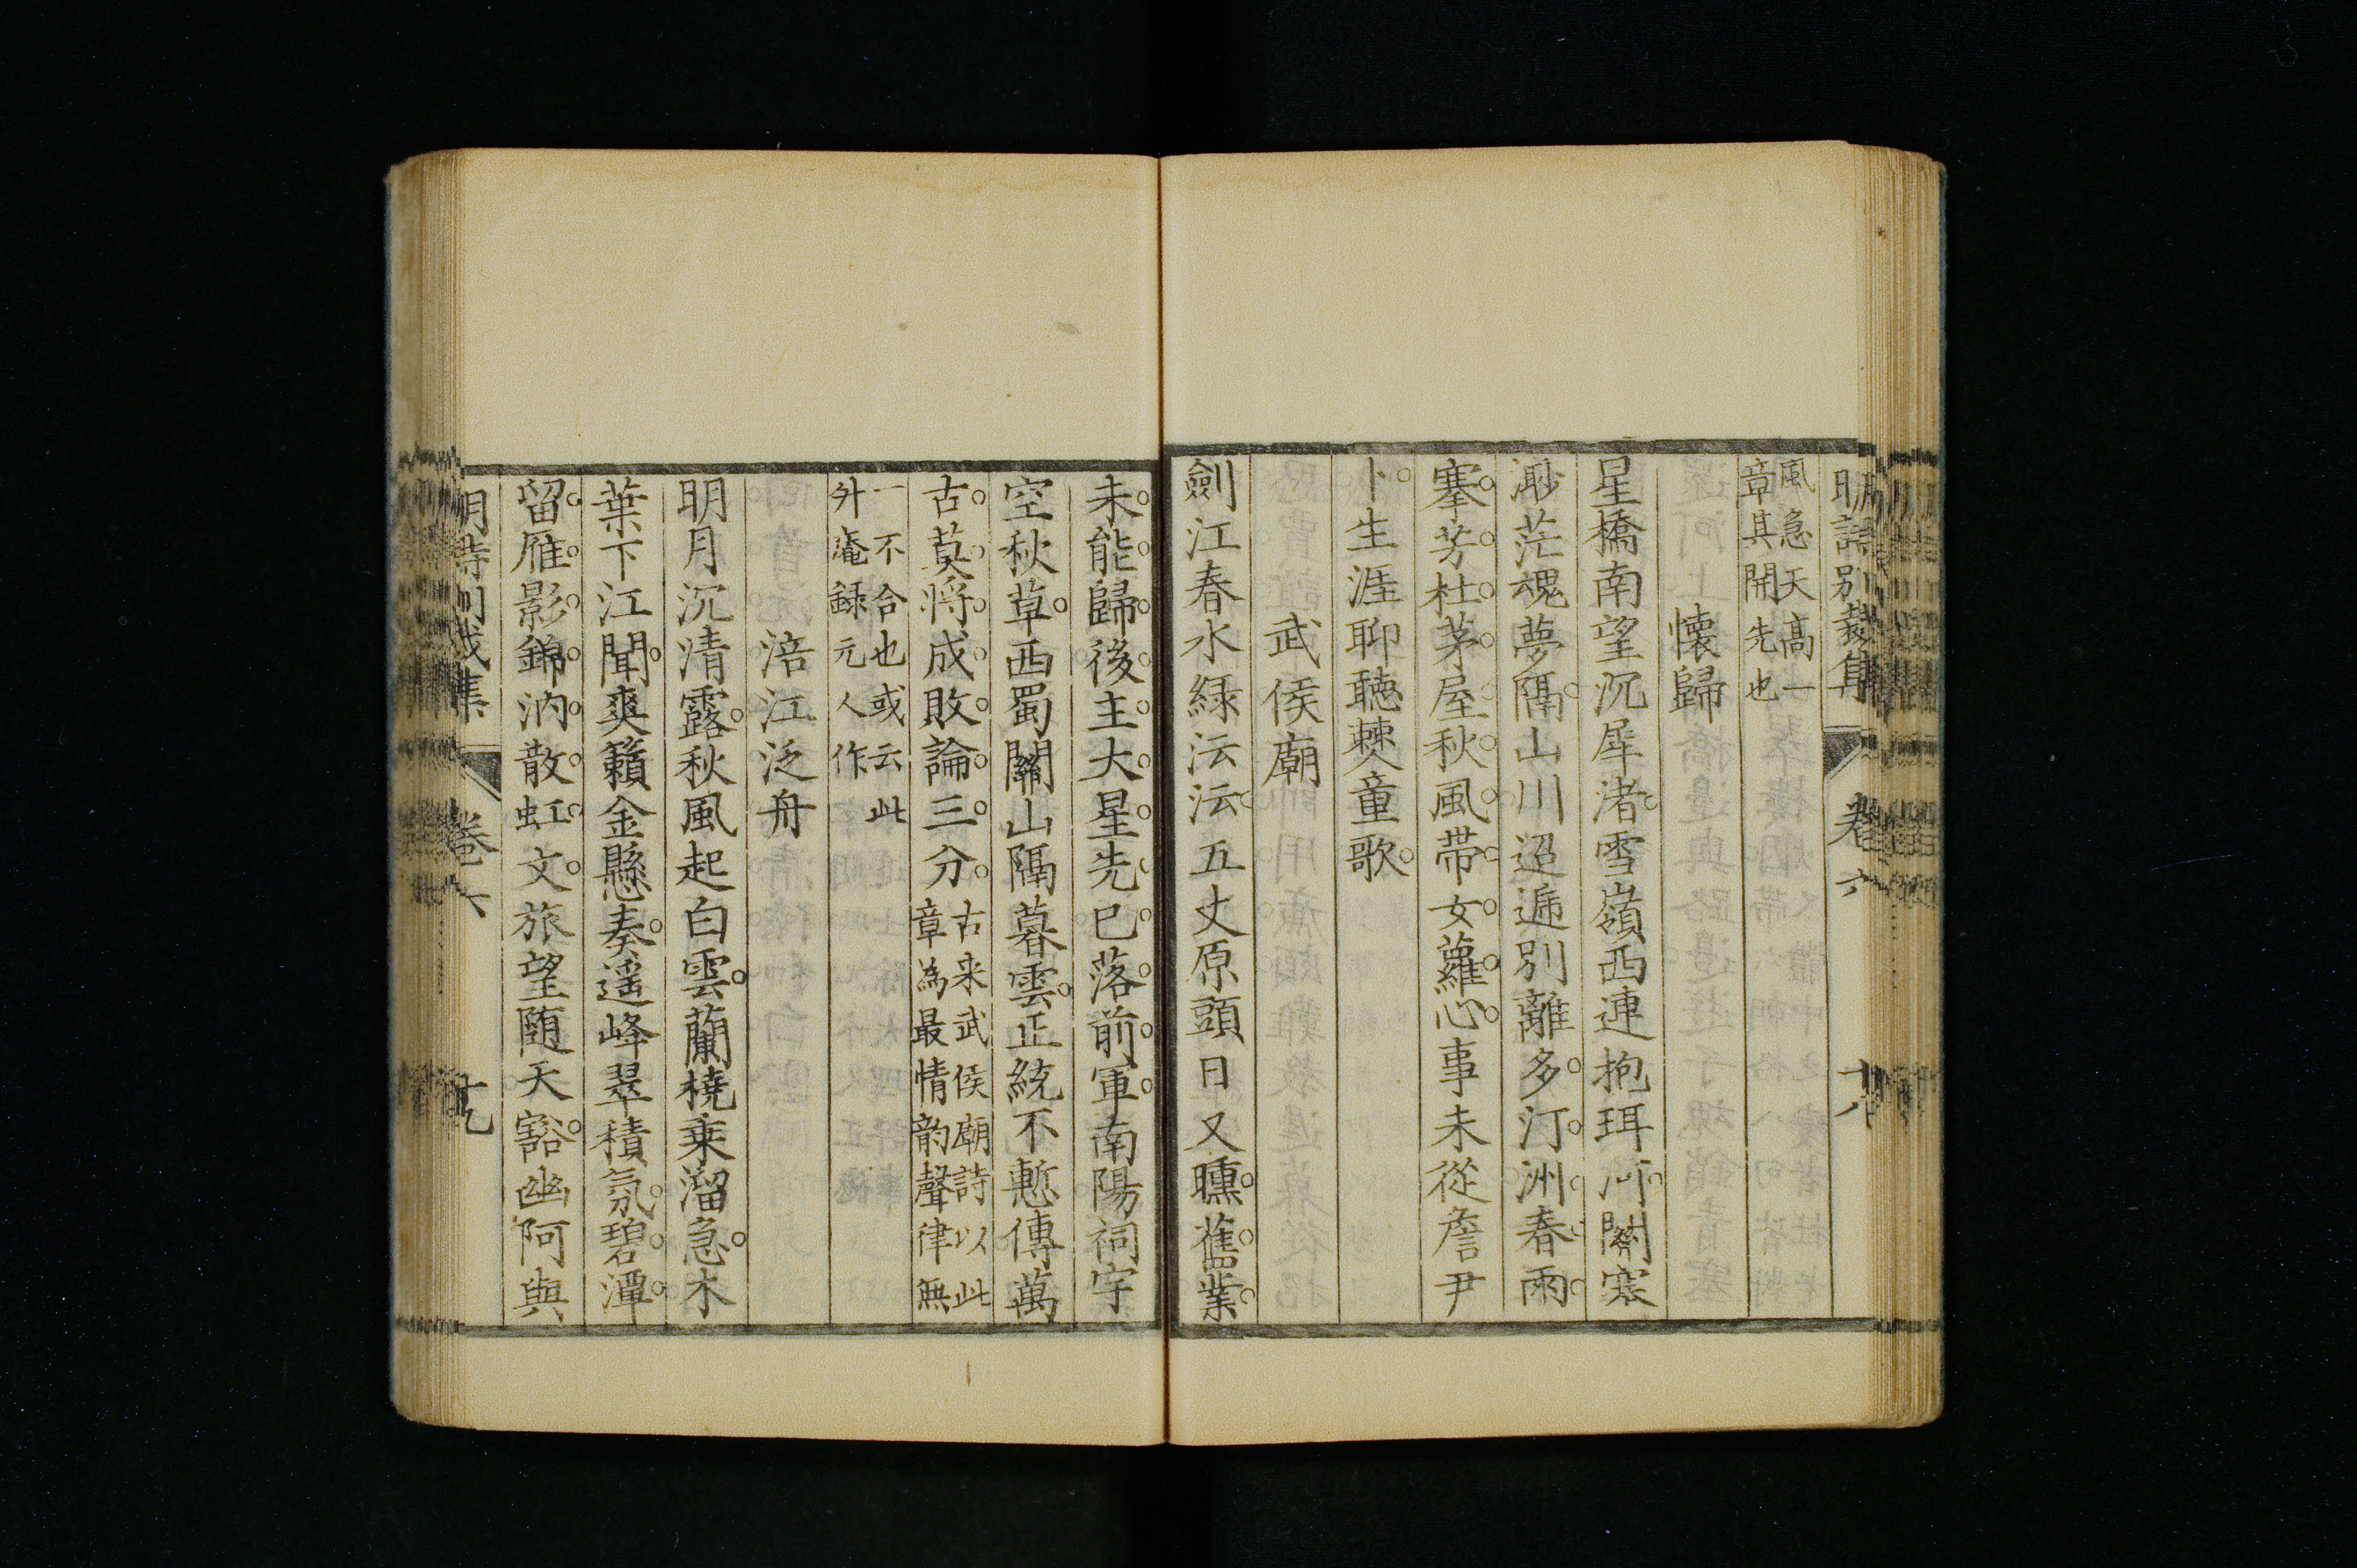 明詩別裁集 卷六 十八
風急天高一
章其開先也
懷歸
星橋南望沉犀渚雪嶺西連抱珥河關塞
渺茫魂夢隔山川迢遞別離多汀洲春雨
搴芳杜茅屋秋風帶女蘿心事未從詹尹
卜生涯聊聽僰童歌
武侯廟
劍江春水綠沄沄五丈原頭日又曛舊業
未能歸後主大星先已落前軍南陽祠宇
空秋草西蜀關山隔暮雲正統不慙傳萬
古莫將成敗論三分
古来武侯廟詩以此
章為最情韵聲律無
一不合也或云此
升庵録元人作
涪江泛舟
明月沉清露秋風起白雲蘭橈乘溜急木
葉下江聞爽籟金懸奏遥峰翠積氛碧潭
留雁影錦汭散虹文旅望随天豁幽阿與
明詩別裁集 卷六 十九